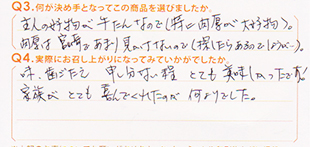 Q3.何が決め手となってこの商品を選びましたか。
主人の好物が牛たんなので(特に肉厚が大好物)。
肉厚は あまり見かけないので(探したらあるのでしょうが…)。
Q4.実際にお召し上がりになってみていかがでしたか。
味、歯ごたえ 申し分ない程 とても美味しかったです。
家族がとても喜んでくれたのが何よりでした。